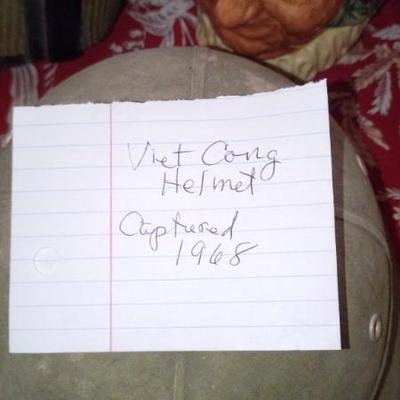 Viet Cong
Helmet
Captured
1968